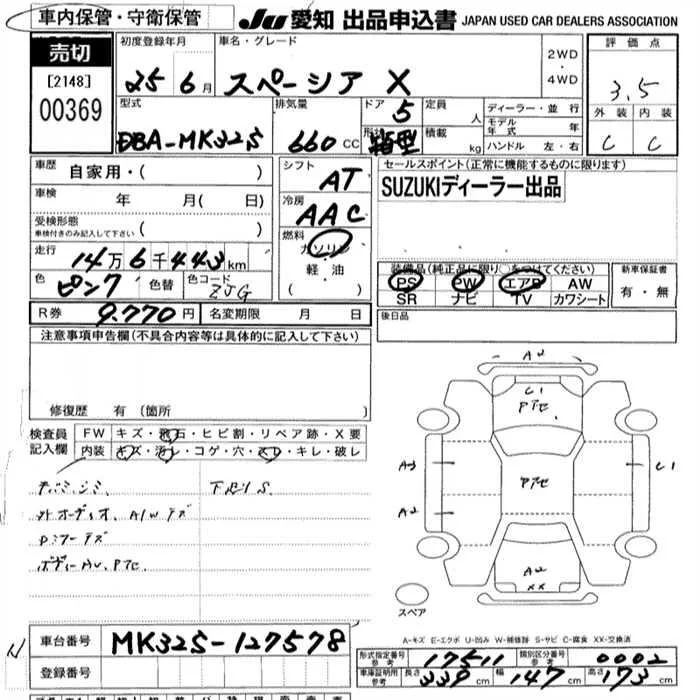 車内保管・守衛保管
JU 愛知 出品申込書 JAPAN USED CAR DEALERS ASSOCIATION
売切
[2148]
00369
初度登録年月
25 6月
車名・グレード
スペーシア X
2WD
・
4WD
評価点
3.5
外装 内装
C C
型式
DBA-MK32S
排気量
660 CC
ドア 5
形状 箱型
定員 人
積載 kg
ディーラー・並行
モデル年式 年
ハンドル 左・右
車歴 自家用・( )
車検 年 月( 日)
受検形態
車検付きのみ記入して下さい ( )
走行 14万6千443km
色 ピンク 色替 色コード ZJG
シフト
AT
冷房
AAC
燃料
ガソリン
軽・油
( )
セールスポイント(正常に機能するものに限ります)
SUZUKIディーラー出品
装備品(純正品に限り○をつけてください)
PS PW エアB AW
SR ナビ TV カワシート
新車保証書
有・無
R券 9,770円 名変期限 月 日
後日品
注意事項申告欄(不具合内容等は具体的に記入して下さい)
修復歴 有 (箇所 )
検査員記入欄
FW キズ・飛石・ヒビ割・リペア跡・X要
内装 キズ・汚レ・コゲ・穴・スレ・キレ・破レ
外オーディオ、A/Wキズ
下廻りS
A2
C1
Pた
A3
A2
C1
A2
XX
スペア
A-キズ E-エクボ U-凹み W-補修跡 S-サビ C-腐食 XX-交換済
車台番号 MK32S-127578
登録番号
形式指定番号 参考 17511 類別区分番号 参考 0002
車庫証明用 参考 長さ 339cm 幅 147cm 高さ 173cm